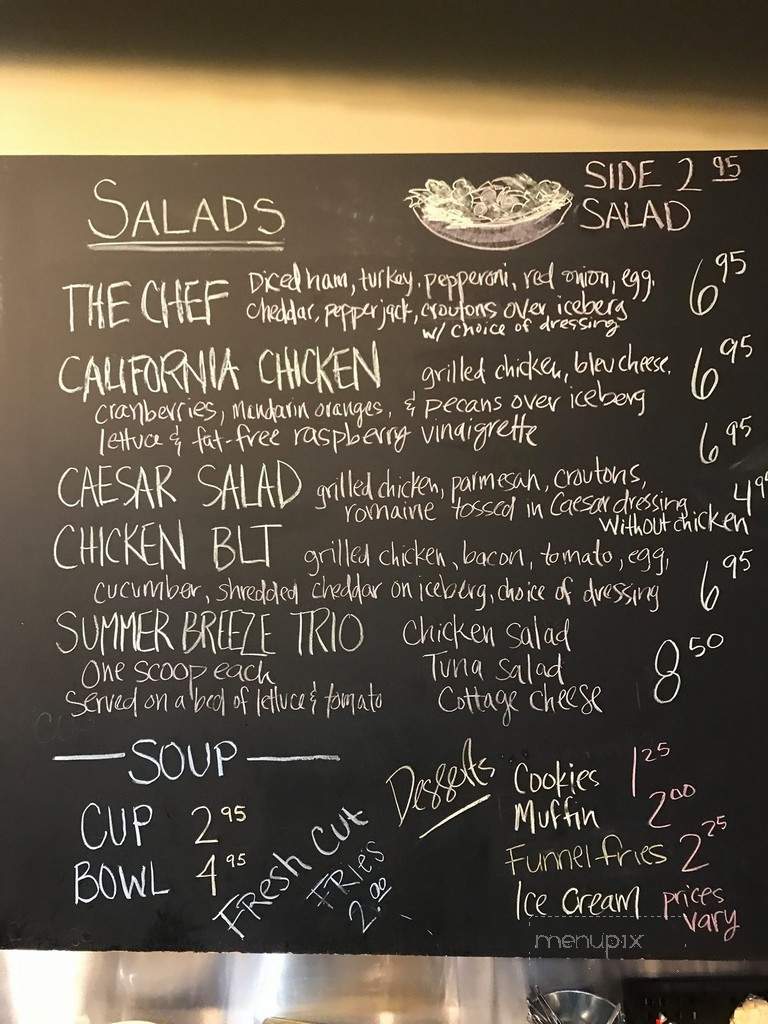 SALADS
SIDE 2 95
SALAD
THE CHEF Diced ham, turkey, pepperoni, red onion, egg, 6 95
cheddar, pepperjack, croutons over iceberg
w/ choice of dressing
CALIFORNIA CHICKEN grilled chicken, bleu cheese, 6 95
cranberries, mandarin oranges, & pecans over iceberg
lettuce & fat-free raspberry vinaigrette
6 95
CAESAR SALAD grilled chicken, parmesan, croutons,
romaine tossed in Caesar dressing 4 95
without chicken
CHICKEN BLT grilled chicken, bacon, tomato, egg,
cucumber, shredded cheddar on iceberg, choice of dressing 6 95
SUMMER BREEZE TRIO Chicken Salad
One scoop each Tuna Salad 8 50
Served on a bed of lettuce & tomato Cottage cheese
SOUP
CUP 2 95
BOWL 4 95
FRESH CUT
FRIES
2.00
Desserts
Cookies 1 25
Muffin 2 00
Funnel fries 2 25
Ice Cream prices
vary
menupix